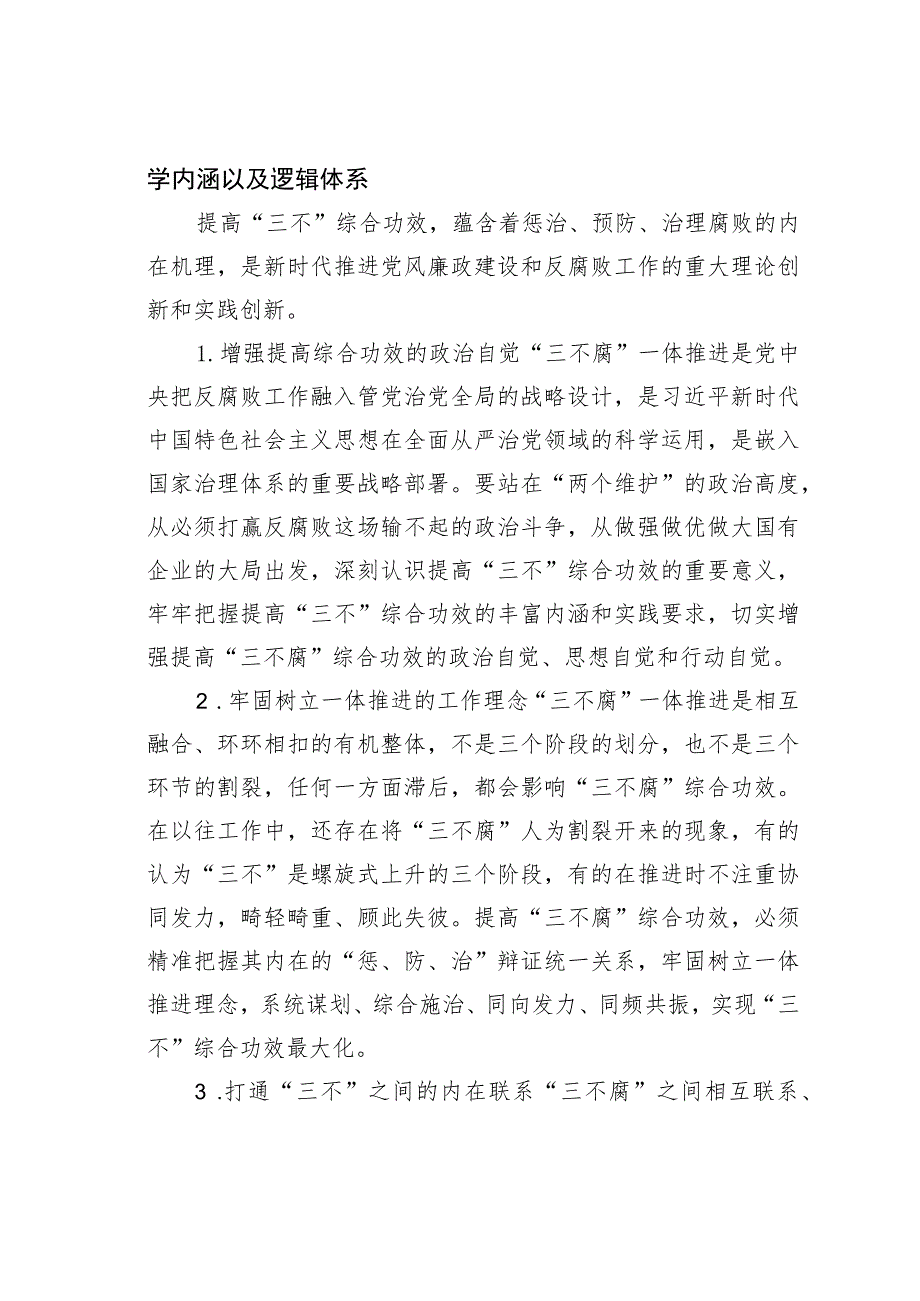 学内涵以及逻辑体系
提高“三不”综合功效，蕴含着惩治、预防、治理腐败的内
在机理，是新时代推进党风廉政建设和反腐败工作的重大理论创
新和实践创新。
1.增强提高综合功效的政治自觉“三不腐”一体推进是党中
央把反腐败工作融入管党治党全局的战略设计，是习近平新时代
中国特色社会主义思想在全面从严治党领域的科学运用，是嵌入
国家治理体系的重要战略部署。要站在“两个维护”的政治高度，
从必须打赢反腐败这场输不起的政治斗争，从做强做优做大国有
企业的大局出发，深刻认识提高“三不”综合功效的重要意义，
牢牢把握提高“三不”综合功效的丰富内涵和实践要求，切实增
强提高“三不腐”综合功效的政治自觉、思想自觉和行动自觉。
2 .牢固树立一体推进的工作理念“三不腐”一体推进是相互
融合、环环相扣的有机整体，不是三个阶段的划分，也不是三个
环节的割裂，任何一方面滞后，都会影响“三不腐”综合功效。
在以往工作中，还存在将“三不腐”人为割裂开来的现象，有的
认为“三不”是螺旋式上升的三个阶段，有的在推进时不注重协
同发力，畸轻畸重、顾此失彼。提高“三不腐”综合功效，必须
精准把握其内在的“惩、防、治”辩证统一关系，牢固树立一体
推进理念，系统谋划、综合施治、同向发力、同频共振，实现“三
不”综合功效最大化。
3 .打通“三不”之间的内在联系“三不腐”之间相互联系、